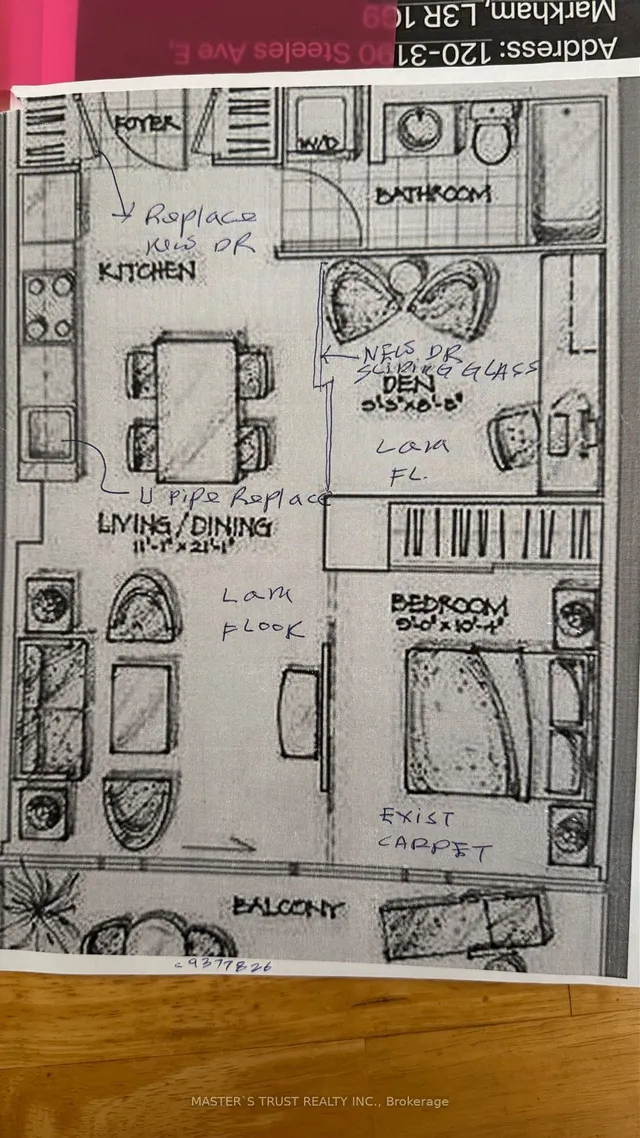 Address: 120-3190 Steeles Ave E,
Markham, L3R 1G9
FOYER
W/D
BATHROOM
Replace
NEW DR
KITCHEN
NEW DR
SLIDING GLASS
DEN
9'-5"x8'-8"
Lam
FL.
U PiPe Replace
LIVING/DINING
11'-1"x21'-1"
Lam
FLOOR
BEDROOM
9'-0"x10'-4"
EXIST
CARPET
BALCONY
C9377826
MASTER`S TRUST REALTY INC., Brokerage